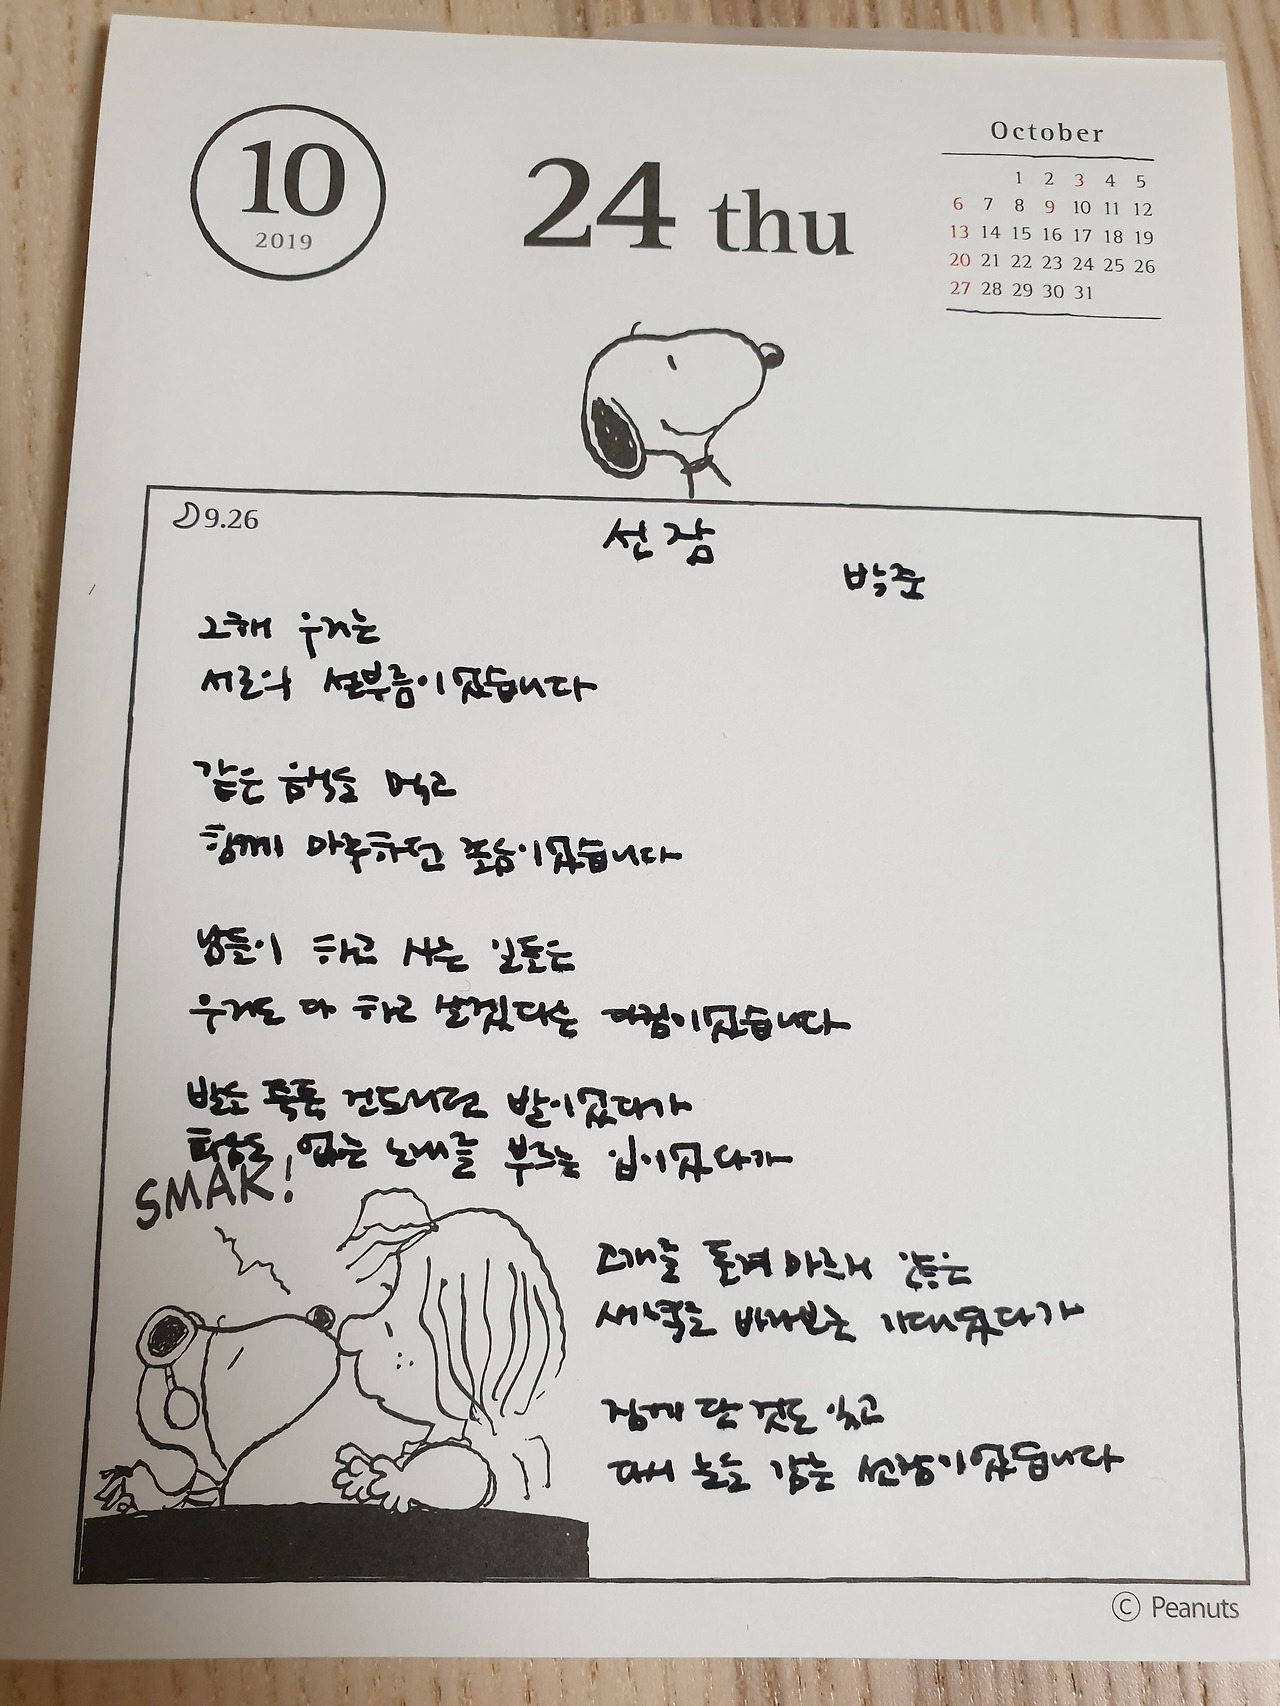 10
2019
24 thu
October
1 2 3 4 5
6 7 8 9 10 11 12
13 14 15 16 17 18 19
20 21 22 23 24 25 26
27 28 29 30 31
9.26
선잠
박준
그해 우리는
서로의 섣부름이었습니다
같은 음식도 먹고
함께 마주하던 졸음이었습니다
남들이 하고 사는 일들은
우리도 다 하고 살겠다는 다짐이었습니다
발을 툭툭 건드리던 발이었다가
화음도 없는 노래를 부르는 입이었다가
SMAK!
고개를 돌려 마르지 않은
새벽을 바라보는 기대였다가
잠에 든 것도 잊고
다시 눈을 감는 선잠이었습니다
© Peanuts